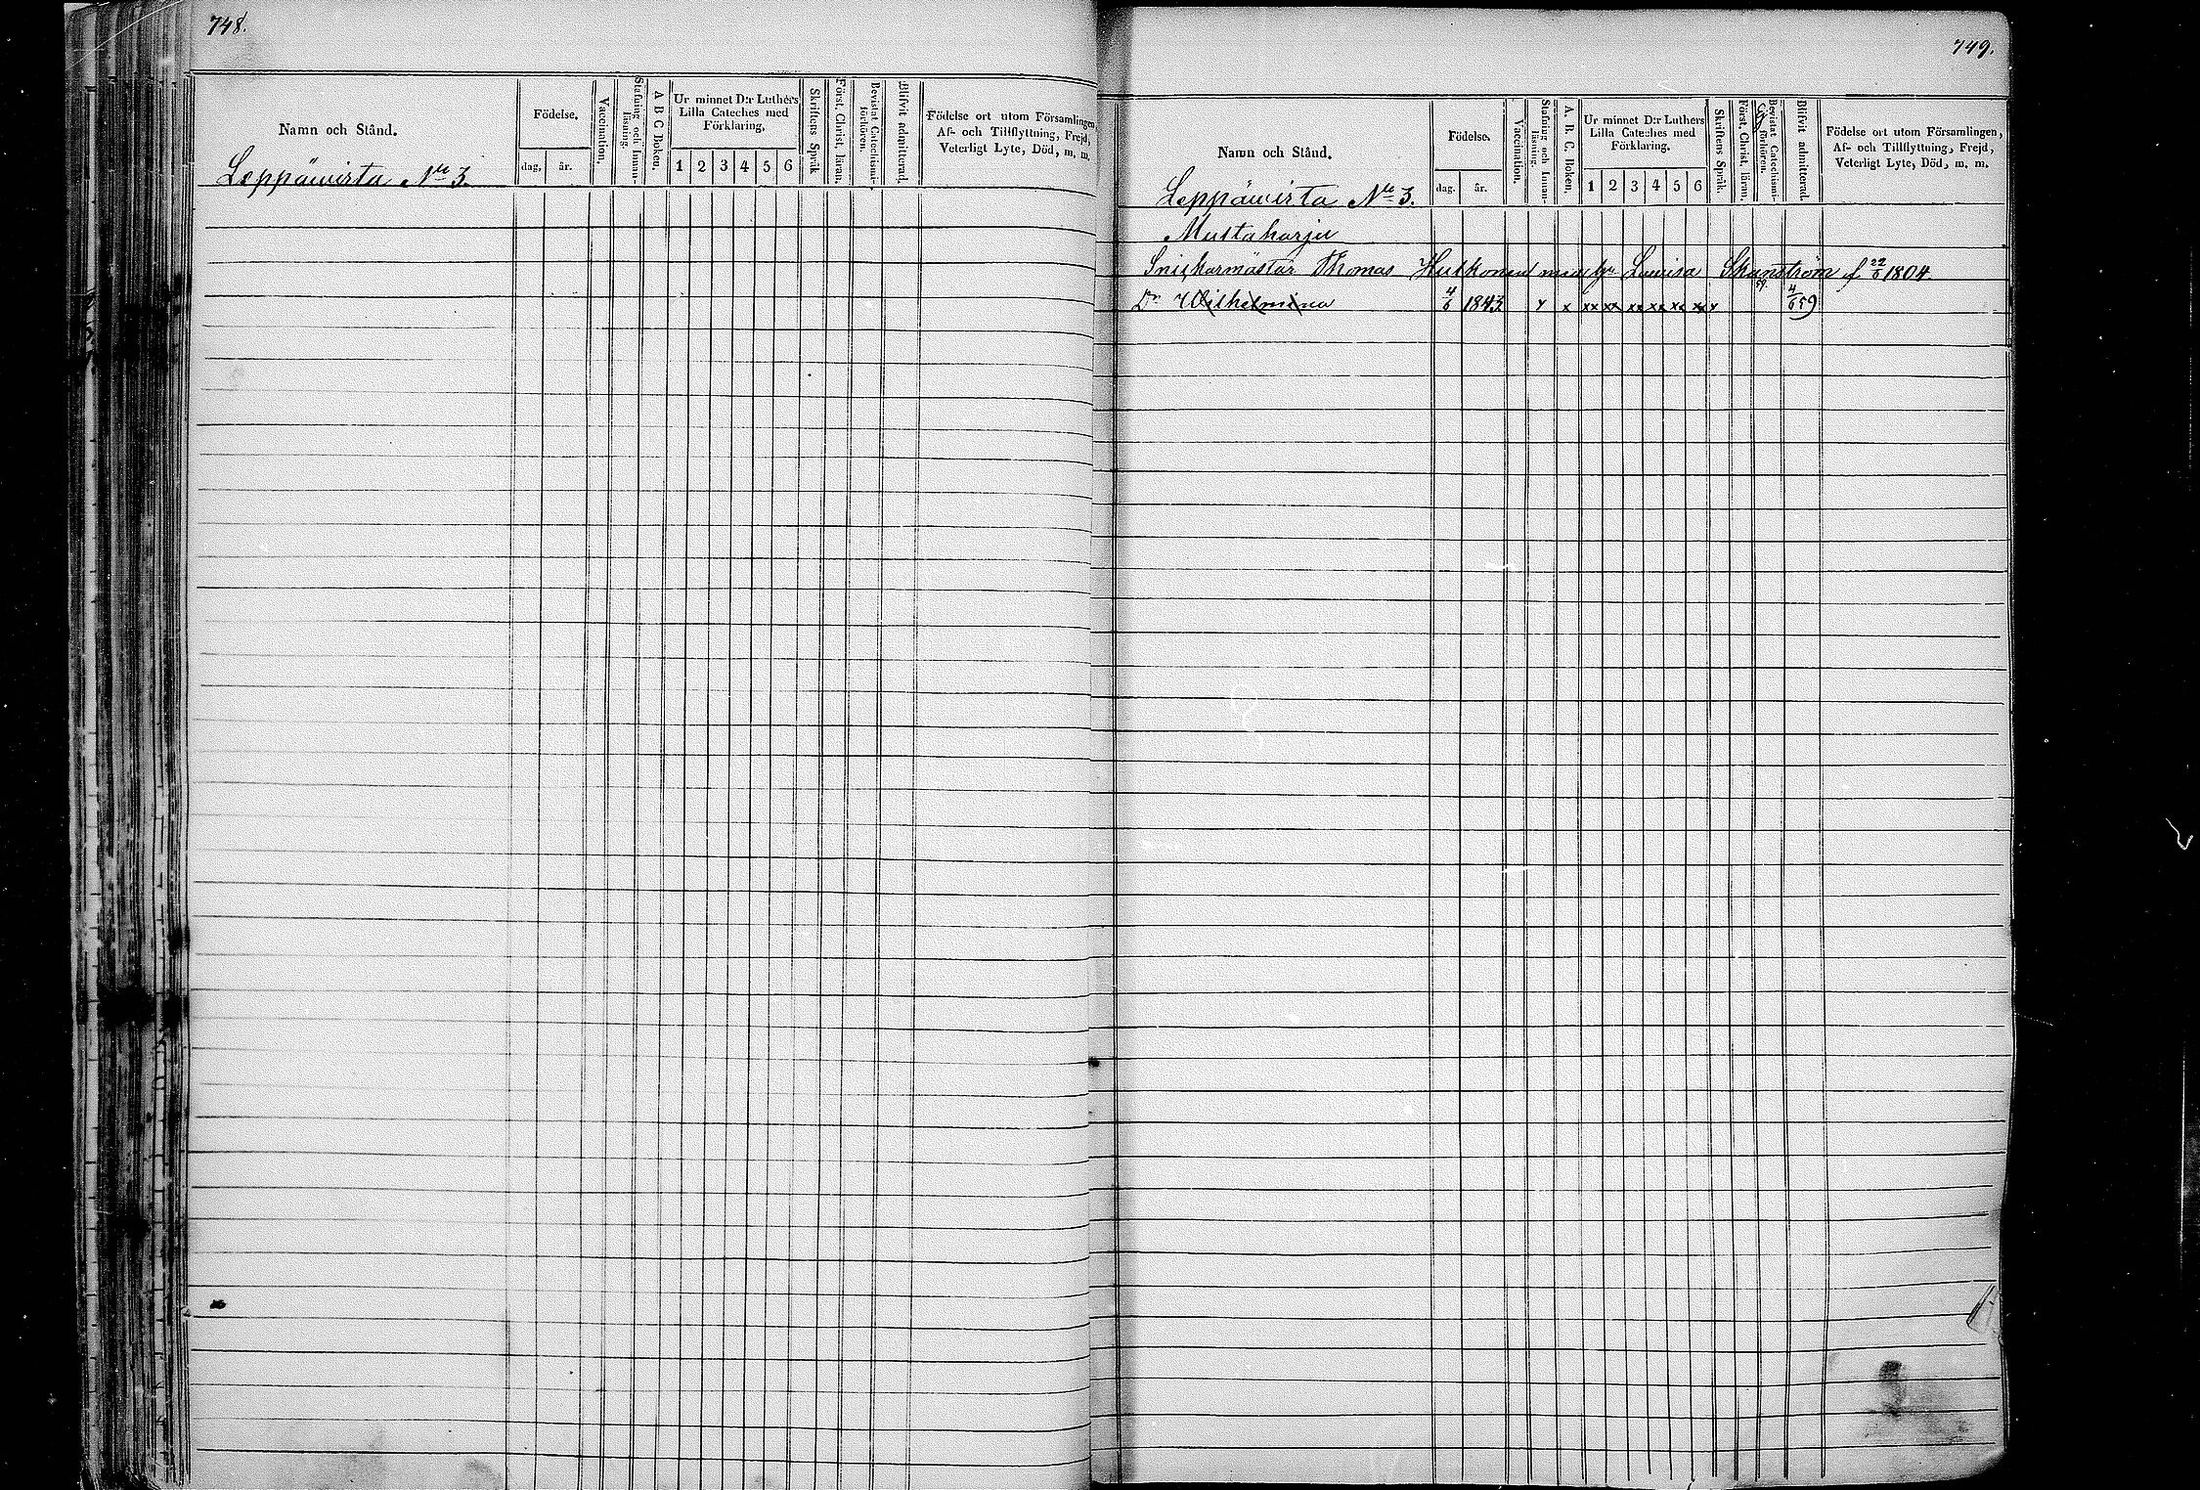 748.
Namn och Stånd.
Födelse.
dag, år.
Vaccination.
Stafning och Innan-
läsning.
A B C Boken.
Ur minnet D:r Luthers
Lilla Cateches med
Förklaring.
1 2 3 4 5 6
Skriftens Språk
Först. Christ. läran.
Bevistat Catechismi-
förhören.
Blifvit admitterad.
Födelse ort utom Församlingen,
Af- och Tillflyttning, Frejd,
Veterligt Lyte, Död, m. m.
Leppäwirta No 3.
749.
Namn och Stånd.
Födelse.
dag. år.
Vaccination.
Stafning och Innan-
läsning.
A. B. C. Boken.
Ur minnet D:r Luthers
Lilla Cateches med
Förklaring.
1 2 3 4 5 6
Skriftens Språk.
Först. Christ. läran.
Bevistat Catechismi-
förhören.
Blifvit admitterad.
Födelse ort utom Församlingen,
Af- och Tillflyttning, Frejd,
Veterligt Lyte, Död, m. m.
Leppäwirta No 3.
Mustaharju
Snickarmästar Thomas Hulkonen med Lowisa f 22/6 1804
Dr Wilhelmina 4/6 1843 x x xx xx xx xx xx xx x 59 4/6 59